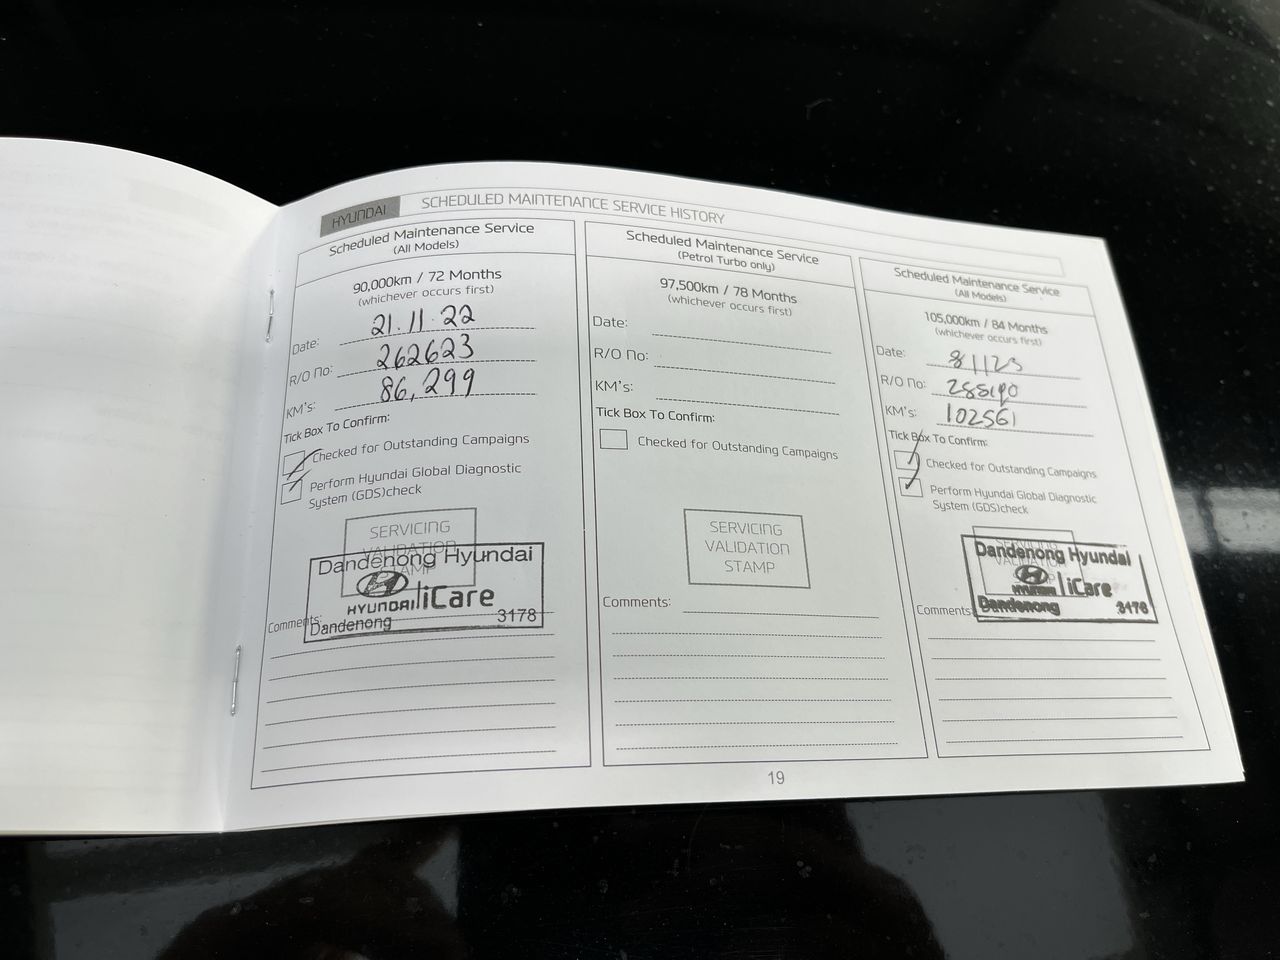 HYUNDAI SCHEDULED MAINTENANCE SERVICE HISTORY
Scheduled Maintenance Service
(All Models)
90,000km / 72 Months
(whichever occurs first)
Date: 21.11.22
R/O No: 262623
KM's: 86,299
Tick Box To Confirm:
Checked for Outstanding Campaigns
Perform Hyundai Global Diagnostic
System (GDS)check
SERVICING
VALIDATION
STAMP
Dandenong Hyundai
HYUNDAI iCare
Dandenong 3178
Comments:
Scheduled Maintenance Service
(Petrol Turbo only)
97,500km / 78 Months
(whichever occurs first)
Date:
R/O No:
KM's:
Tick Box To Confirm:
Checked for Outstanding Campaigns
SERVICING
VALIDATION
STAMP
Comments:
Scheduled Maintenance Service
(All Models)
105,000km / 84 Months
(whichever occurs first)
Date:
R/O No:
KM's: 102561
Tick Box To Confirm:
Checked for Outstanding Campaigns
Perform Hyundai Global Diagnostic
System (GDS)check
SERVICING
VALIDATION
Dandenong Hyundai
HYUNDAI iCare
Dandenong 3178
Comments:
19